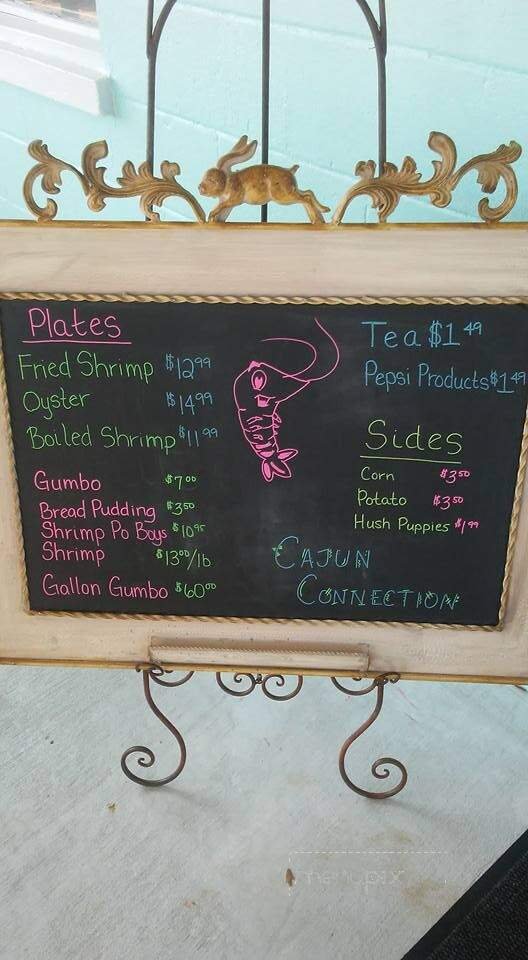 Plates
Fried Shrimp $12.99
Oyster $14.99
Boiled Shrimp $11.99
Gumbo $7.00
Bread Pudding $3.50
Shrimp Po Boys $10.95
Shrimp $13.00/lb
Gallon Gumbo $60.00
Tea $1.49
Pepsi Products $1.49
Sides
Corn $3.50
Potato $3.50
Hush Puppies $1.99
CAJUN
CONNECTION
menupix